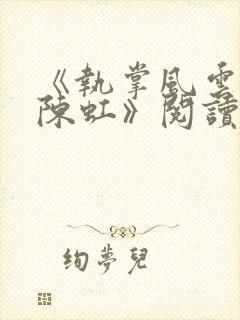 《執掌風雲
陳虹》閱讀
絢夢兒